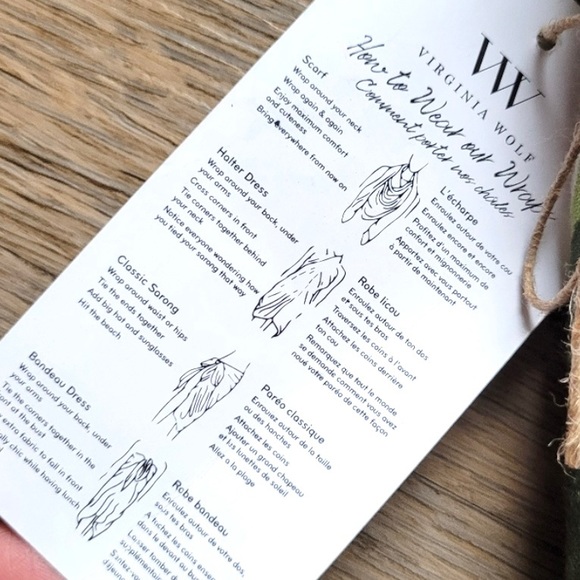 VW
VIRGINIA WOLF
How to Wear our Wraps
Comment porter nos châles
Scarf
Wrap around your neck
Wrap again & again
Enjoy maximum comfort
and cuteness
Bring everywhere from now on
L'écharpe
Enroulez autour de votre cou
Enroulez encore et encore
Profitez d'un maximum de
confort et mignonnerie
Apportez avec vous partout
à partir de maintenant
Halter Dress
Wrap around your back, under
your arms
Cross corners in front
Tie corners together behind
your neck
Notice everyone wondering how
you tied your sarong that way
Robe licou
Enroulez autour de ton dos
et sous tes bras
Traversez les coins à l'avant
Attachez les coins derrière
ton cou
Remarquez que tout le monde
se demande comment vous avez
noué votre paréo de cette façon
Classic Sarong
Wrap around waist or hips
Tie the ends together
Add big hat and sunglasses
Hit the beach
Paréo classique
Enroulez autour de la taille
ou des hanches
Attachez les coins
Ajouter un grand chapeau
et les lunettes de soleil
Allez a la plage
Bandeau Dress
Wrap around your back, under
your arms
Tie the corners together in the
front at the bust
extra fabric to fall in front
chic while having lunch
Robe bandeau
Enroulez autour de votre dos,
sous tes bras
les coins
dans le devant au
Laisser tomber